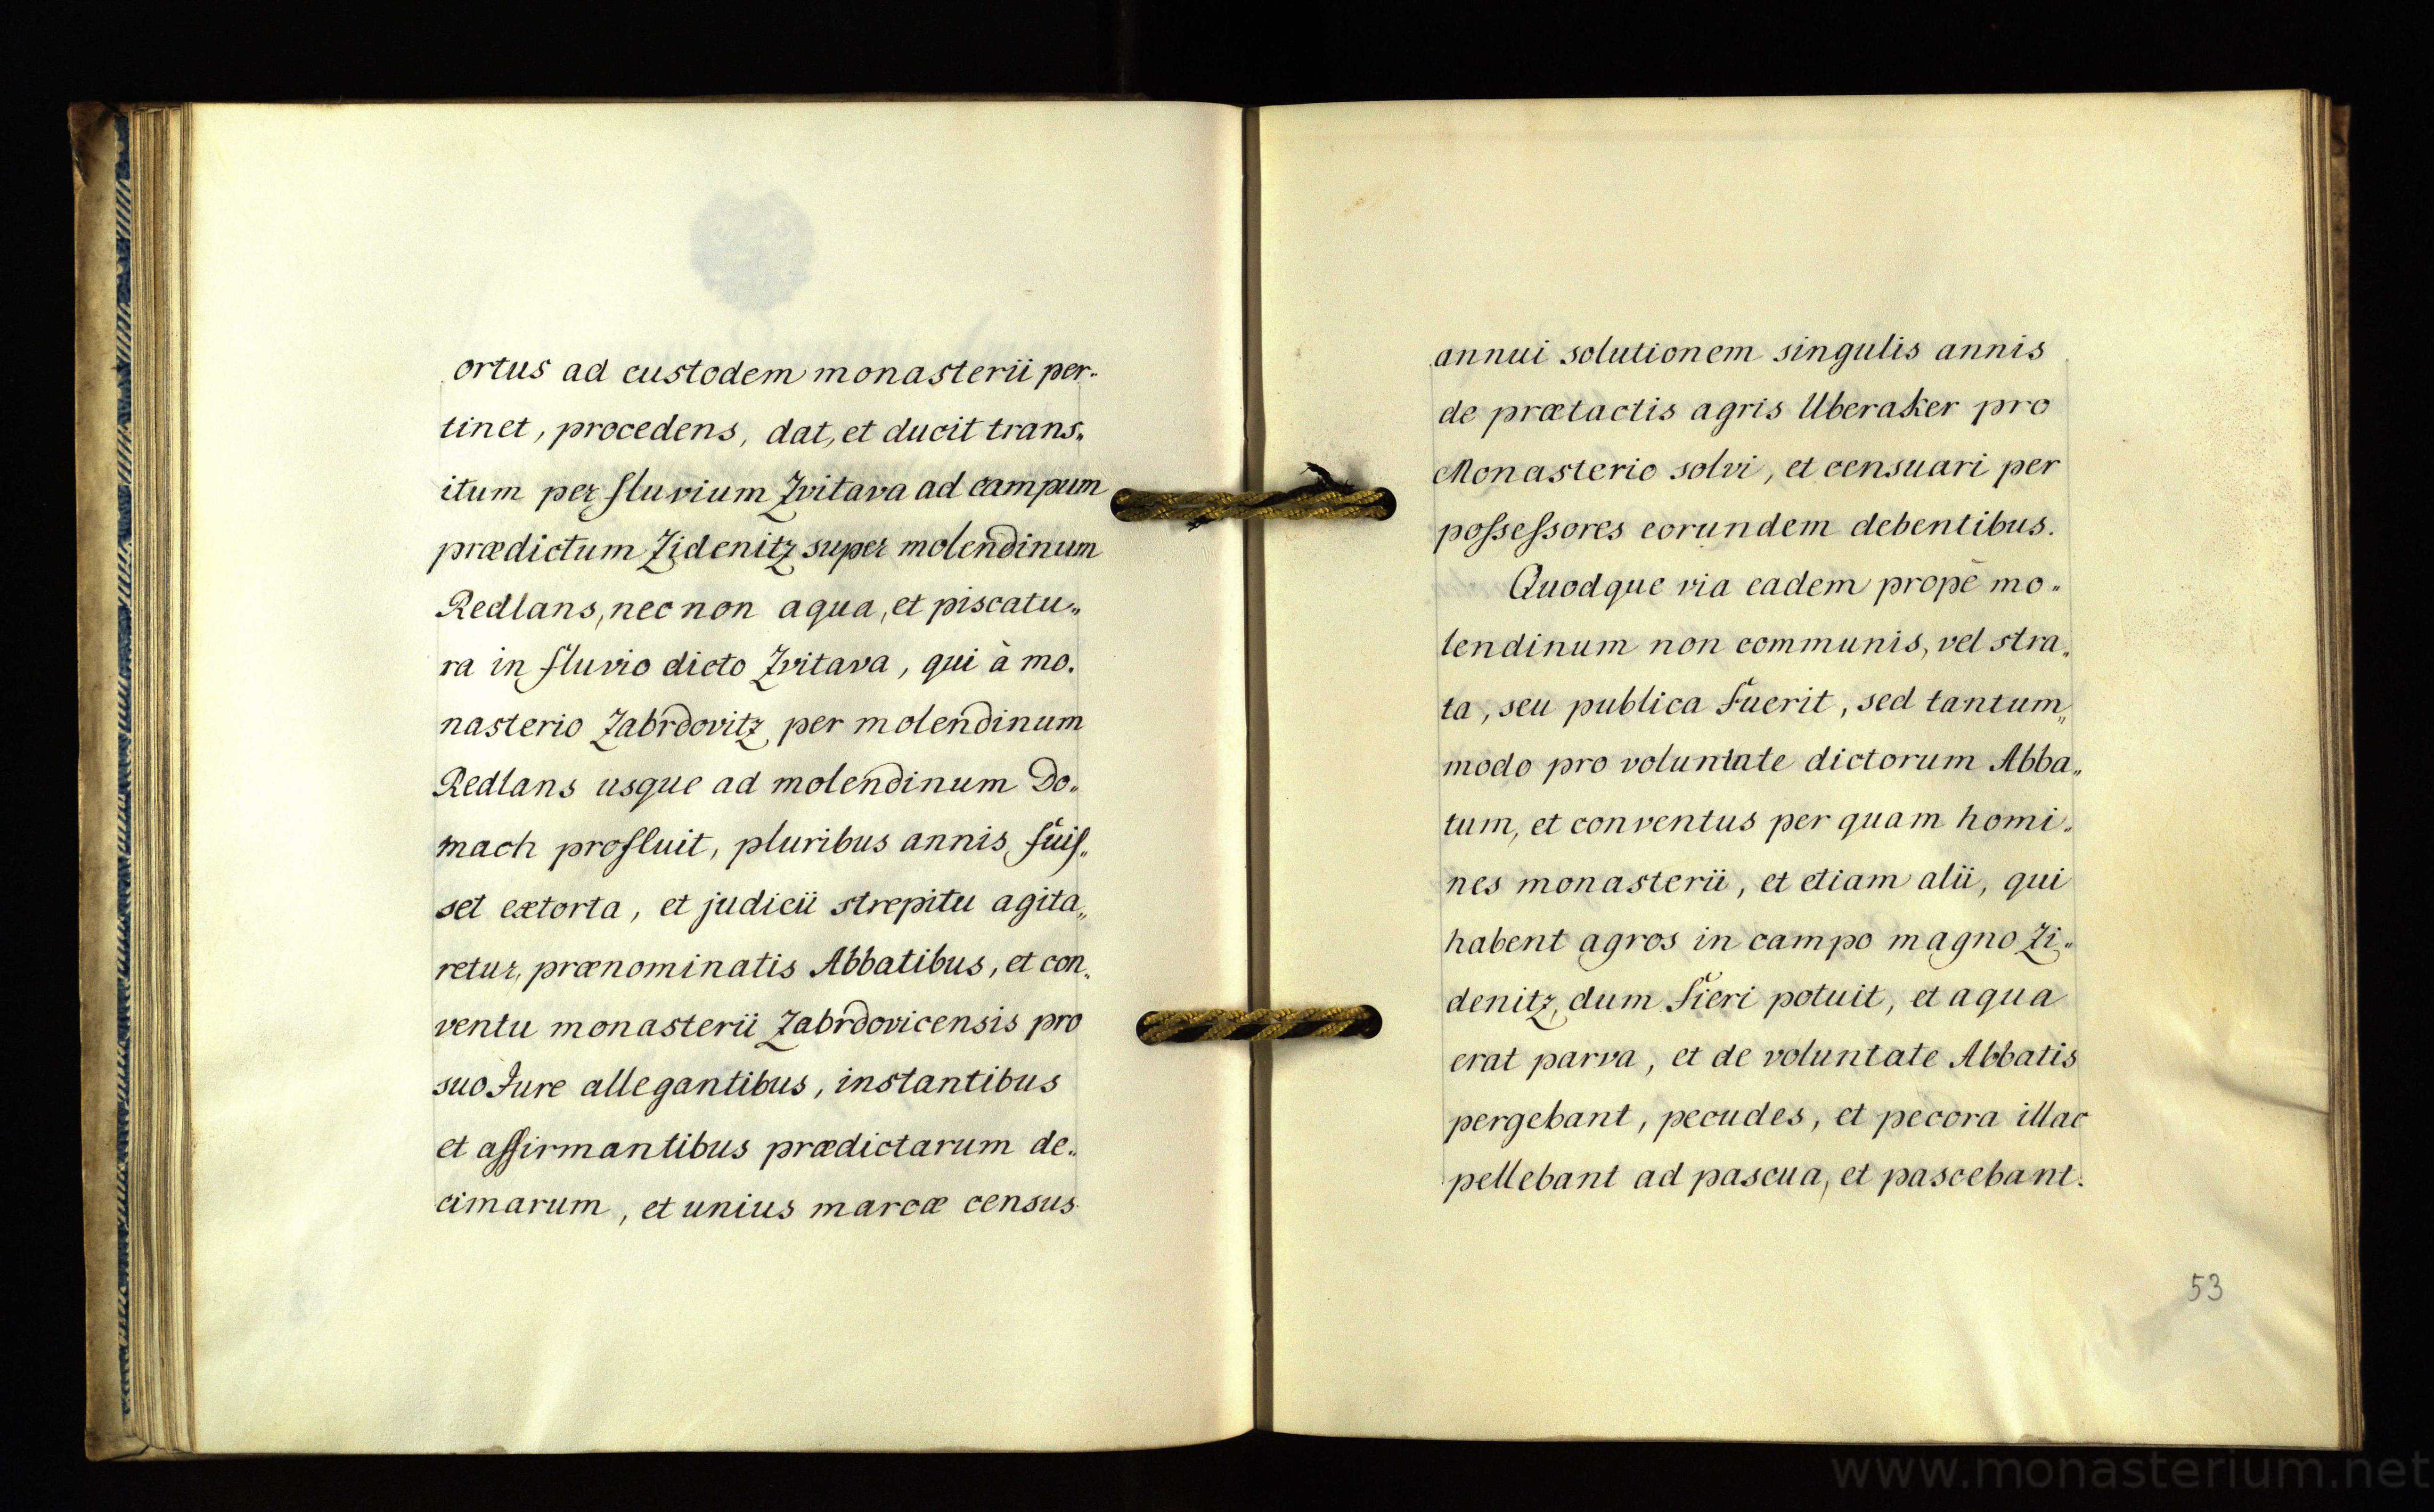 ortus ad custodem monasterii per-
tinet, procedens, dat, et ducit trans„
itum per fluvium Zvitava ad campum
prædictum Zidenitz super molendinum
Redlans, nec non aqua, et piscatu„
ra in fluvio dicto Zvitava, qui à mo.
nasterio Zabrdovitz per molendinum
Redlans usque ad molendinum Do„
mach profluit, pluribus annis fuiſ„
set extorta, et judicii strepitu agita„
retur, prænominatis Abbatibus, et con„
ventu monasterii Zabrdovicensis pro
suo Jure allegantibus, instantibus
et affirmantibus prædictarum de„
cimarum, et unius marcæ census
annui solutionem singulis annis
de prætactis agris Uberaker pro
Monasterio solvi, et censuari per
poſseſsores eorundem debentibus.
Quodque via eadem propè mo„
lendinum non communis, vel stra„
ta, seu publica fuerit, sed tantum„
modo pro voluntate dictorum Abba„
tum, et conventus per quam homi„
nes monasterii, et etiam alii, qui
habent agros in campo magno Zi„
denitz, dum fieri potuit, et aqua
erat parva, et de voluntate Abbatis
pergebant, pecudes, et pecora illac
pellebant ad pascua, et pascebant.
53
www.monasterium.net